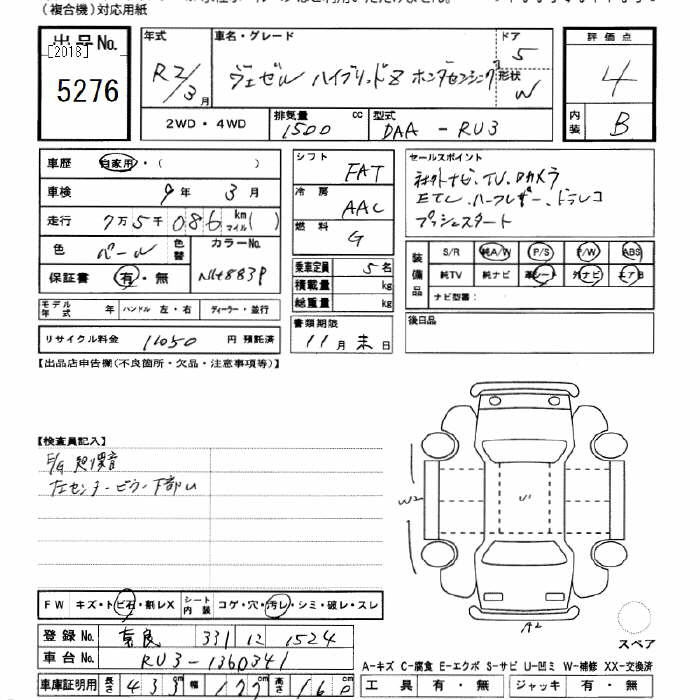 (複合機)対応用紙
出品No.
[2018]
5276
年式 R2/3月
車名・グレード
ヴェゼル ハイブリッドZ ホンダセンシング
ドア 5
形状 W
評価点
4
内装 B
2WD・4WD
排気量 1500 cc
型式 DAA-RU3
車歴 自家用・( )
車検 9年 3月
走行 7万5千086 km マイル( )
色 パール 色替 カラーNo. NH883P
保証書 有・無
シフト FAT
冷房 AAC
燃料 G
乗車定員 5名
積載量 kg
総重量 kg
セールスポイント
社外ナビ、TV、Bカメラ
ETC、ハーフレザー、ドラレコ
プッシュスタート
装備品
S/R 純A/W P/S P/W ABS
純TV 純ナビ 革シート 外ナビ エアB
ナビ型番:
モデル年式 年 ハンドル 左・右 ディーラー・並行
書類期限
11月末日
後日品
リサイクル料金 11050 円 預託済
【出品店申告欄(不良箇所・欠品・注意事項等)】
【検査員記入】
左センターピラー下部U
W2
U1
A2
FW キズ・トビ石・割レX シート内装 コゲ・穴・汚レ・シミ・破レ・スレ
スペア
登録No. 奈良 331 12 1524
車台No. RU3-1360341
A-キズ C-腐食 E-エクボ S-サビ U-凹ミ W-補修 XX-交換済
車庫証明用 長さ 433 幅 177 高さ 160
工具 有・無 ジャッキ 有・無